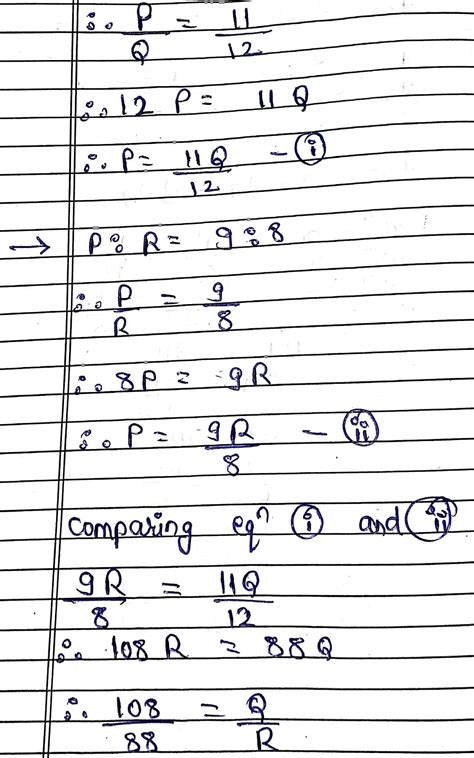 ∴ P/Q = 11/12
∴ 12 P = 11Q
∴ P = 11Q/12 - (i)
→ P : R = 9 : 8
∴ P/R = 9/8
∴ 8P = 9R
∴ P = 9R/8 - (ii)
comparing eqⁿ (i) and (ii)
9R/8 = 11Q/12
∴ 108 R = 88 Q
∴ 108/88 = Q/R